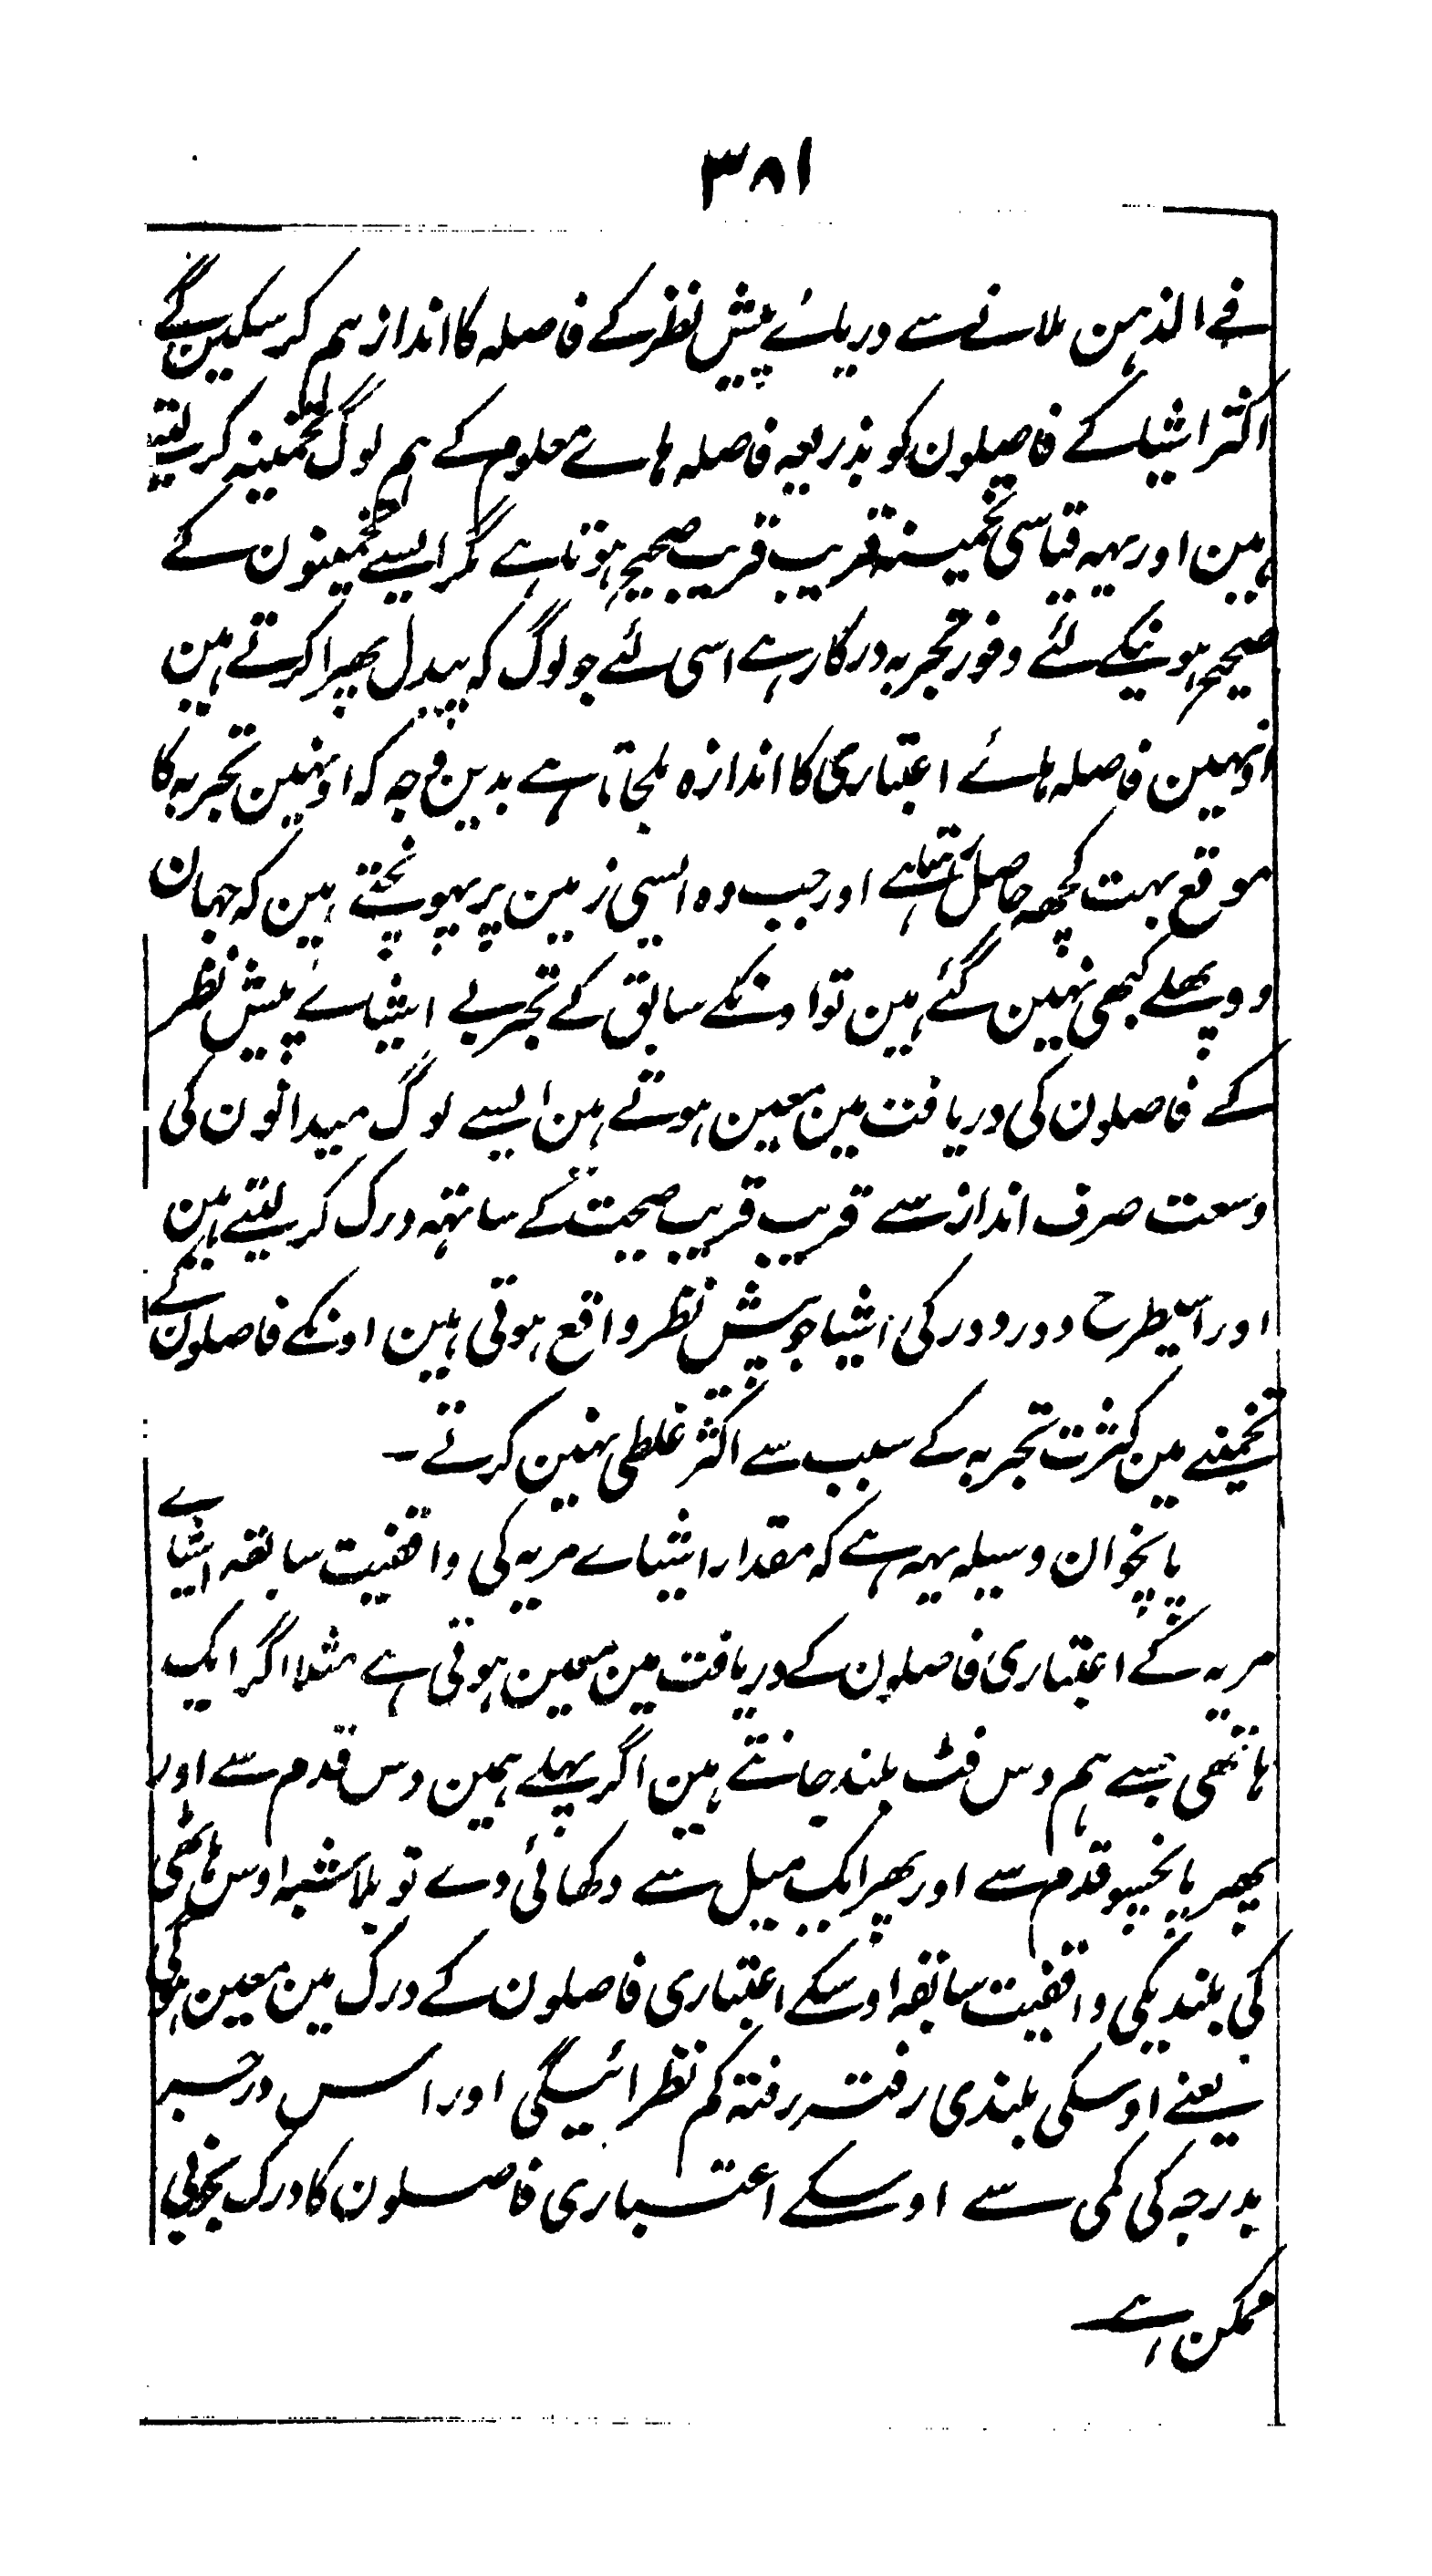 ۳۸۱
فے الذہن ملانے سے دریاے پیش نظر کے فاصلہ کا انداز ہم کر سکین گے
اکثر اشیا کے فاصلون کو بذریعہ فاصلہ ہاے معلوم کے ہم لوگ تخمینہ کر لیتے
ہین اور یہہ قیاسی تخمینہ قریب قریب صحیح ہوتا ہے مگر ایسے تخمینون کے
صحیح ہونیکے لئے وفور تجربہ درکار ہے اسی لئے جو لوگ کہ پیدل پھرا کرتے ہین
اونہین فاصلہ ہائے اعتباری کا اندازہ ملجاتا ہے بدین وجہ کہ اونہین تجربہ کا
موقع بہت کچھہ حاصل رہتا ہے اور جب وہ ایسی زمین پر پہونچتے ہین کہ جہان
وہ پھلے کبھی نہین گئے ہین تو اونکے سابق کے تجربے اشیاے پیش نظر
کے فاصلون کی دریافت مین معین ہوتے ہین ایسے لوگ میدانون کی
وسعت صرف انداز سے قریب قریب صحیت کے ساتھہ درک کر لیتے ہین
اور اسیطرح دور دور کی اشیا جو پیش نظر واقع ہوتی ہین اونکے فاصلون کے
تخمینے مین کثرت تجربہ کے سبب سے اکثر غلطی نہین کرتے ۔
پانچوان وسیلہ یہہ ہے کہ مقدار اشیاے مریہ کی واقفیت سابقہ اشیاے
مریہ کے اعتباری فاصلون کے دریافت مین معین ہوتی ہے مثلا اگر ایک
ہاتھی جسے ہم دس فٹ بلند جانتے ہین اگر پہلے ہمین دس قدم سے اور
پھر پانچسو قدم سے اور پھر ایک میل سے دکھائی دے تو بلا شبہ اوس ہاتھی
کی بلندیکی واقفیت سابقہ اوسکے اعتباری فاصلون کے درک مین معین ہوگی
یعنے اوسکی بلندی رفتہ رفتہ کم نظر ائیگی اور اس درجہ
بدرجہ کی کمی سے اوسکے اعتباری فاصلون کا درک بخوبی
ممکن ہے